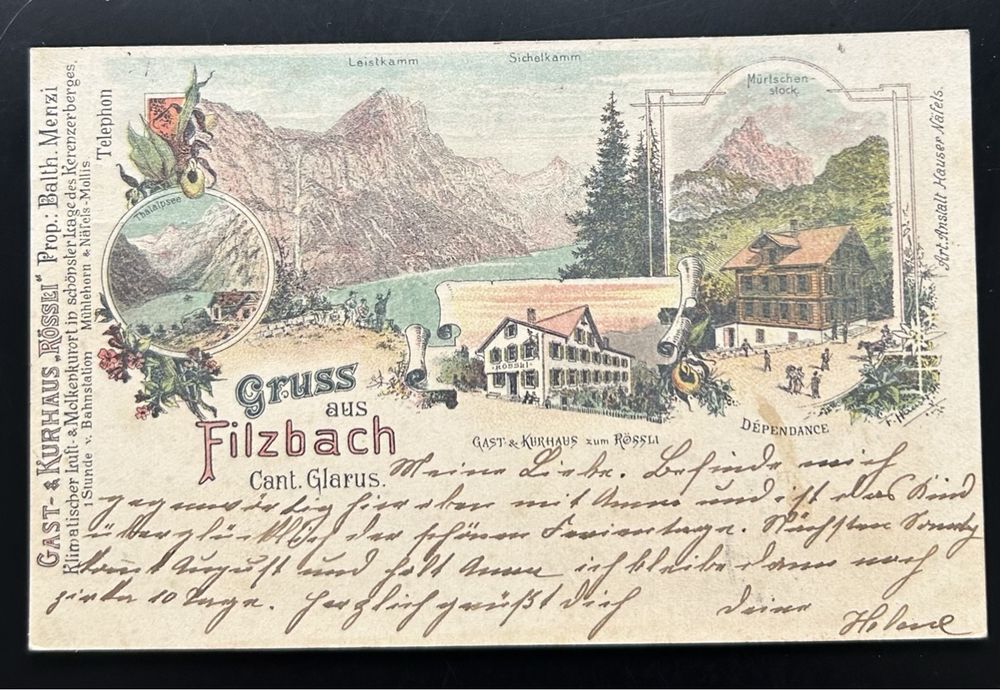 Leistkamm
Sichelkamm
Mürtschen-
stock.
Thalalpsee
GAST- & KURHAUS „RÖSSLI“ Prop.: Balth. Menzi
Klimatischer Luft- & Molkenkurort in schönster Lage des Kerenzerberges,
1 Stunde v. Bahnstation Mühlehorn & Näfels-Mollis
Telephon
Art. Anstalt Hauser Näfels.
RÖSSLI
Gruss
aus
Filzbach
Cant. Glarus.
GAST & KURHAUS ZUM RÖSSLI
DÉPENDANCE
Meine Liebe. Befinde mich
gegenwärtig hier oben mit Anna und ist das Kind
überglücklich der schönen Ferientage. Nächsten Sonntg
komt August und holt Anna, ich bleibe dann noch
zirka 10 Tage. Herzlich grüßt dich Deine
Helene